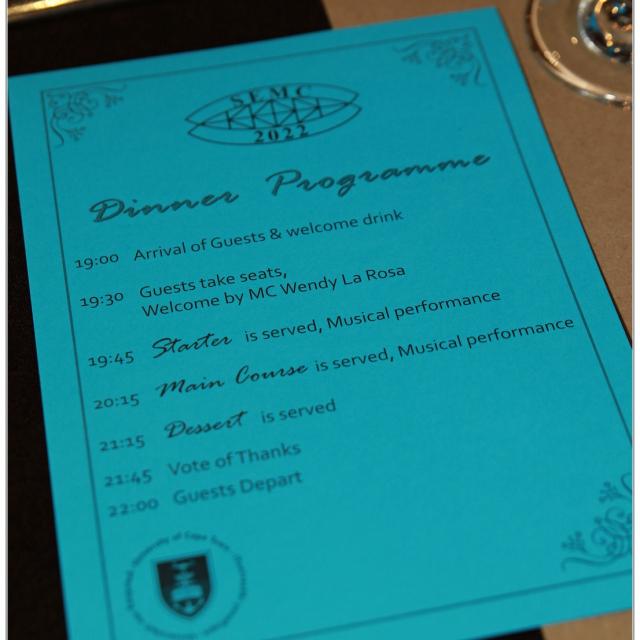 SEMC
2022
Dinner Programme
19:00 Arrival of Guests & welcome drink
19:30 Guests take seats,
Welcome by MC Wendy La Rosa
19:45 Starter is served, Musical performance
20:15 Main Course is served, Musical performance
21:15 Dessert is served
21:45 Vote of Thanks
22:00 Guests Depart
University of Cape Town